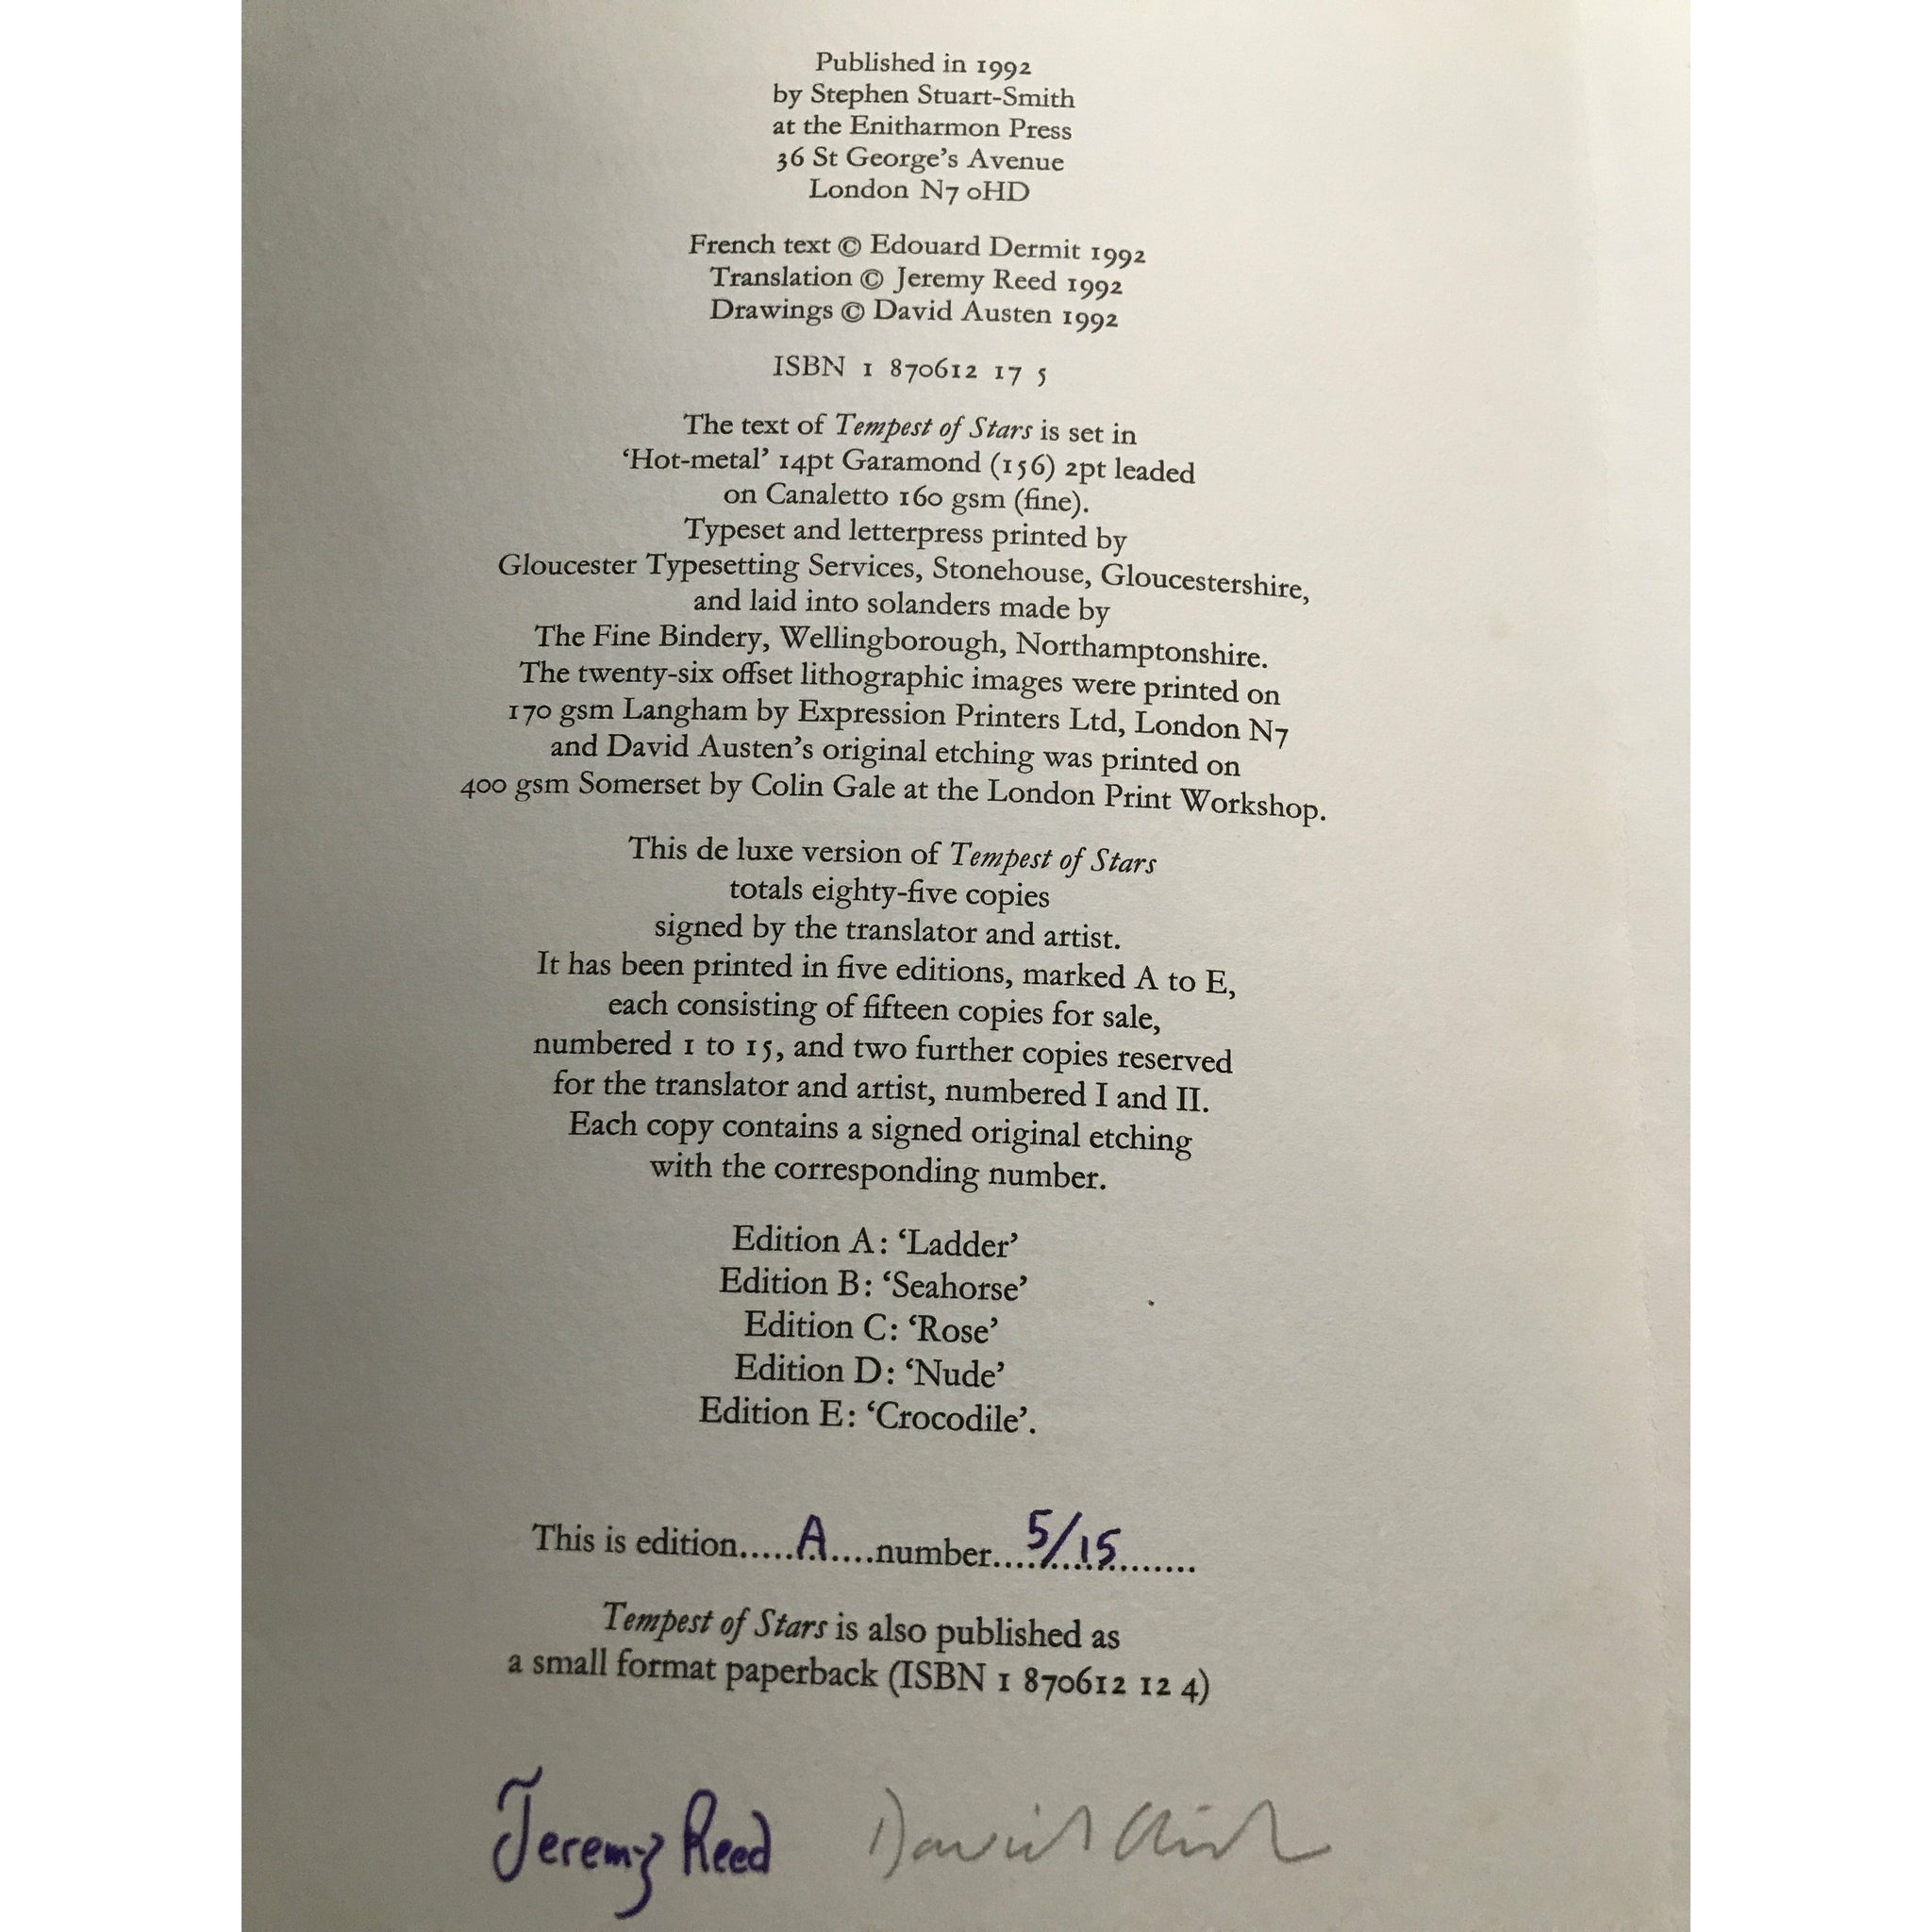 Published in 1992
by Stephen Stuart-Smith
at the Enitharmon Press
36 St George's Avenue
London N7 0HD
French text © Edouard Dermit 1992
Translation © Jeremy Reed 1992
Drawings © David Austen 1992
ISBN 1 870612 17 5
The text of Tempest of Stars is set in
‘Hot-metal’ 14pt Garamond (156) 2pt leaded
on Canaletto 160 gsm (fine).
Typeset and letterpress printed by
Gloucester Typesetting Services, Stonehouse, Gloucestershire,
and laid into solanders made by
The Fine Bindery, Wellingborough, Northamptonshire.
The twenty-six offset lithographic images were printed on
170 gsm Langham by Expression Printers Ltd, London N7
and David Austen’s original etching was printed on
400 gsm Somerset by Colin Gale at the London Print Workshop.
This de luxe version of Tempest of Stars
totals eighty-five copies
signed by the translator and artist.
It has been printed in five editions, marked A to E,
each consisting of fifteen copies for sale,
numbered 1 to 15, and two further copies reserved
for the translator and artist, numbered I and II.
Each copy contains a signed original etching
with the corresponding number.
Edition A: ‘Ladder’
Edition B: ‘Seahorse’
Edition C: ‘Rose’
Edition D: ‘Nude’
Edition E: ‘Crocodile’.
This is edition.....A....number....5/15........
Tempest of Stars is also published as
a small format paperback (ISBN 1 870612 12 4)
Jeremy Reed David